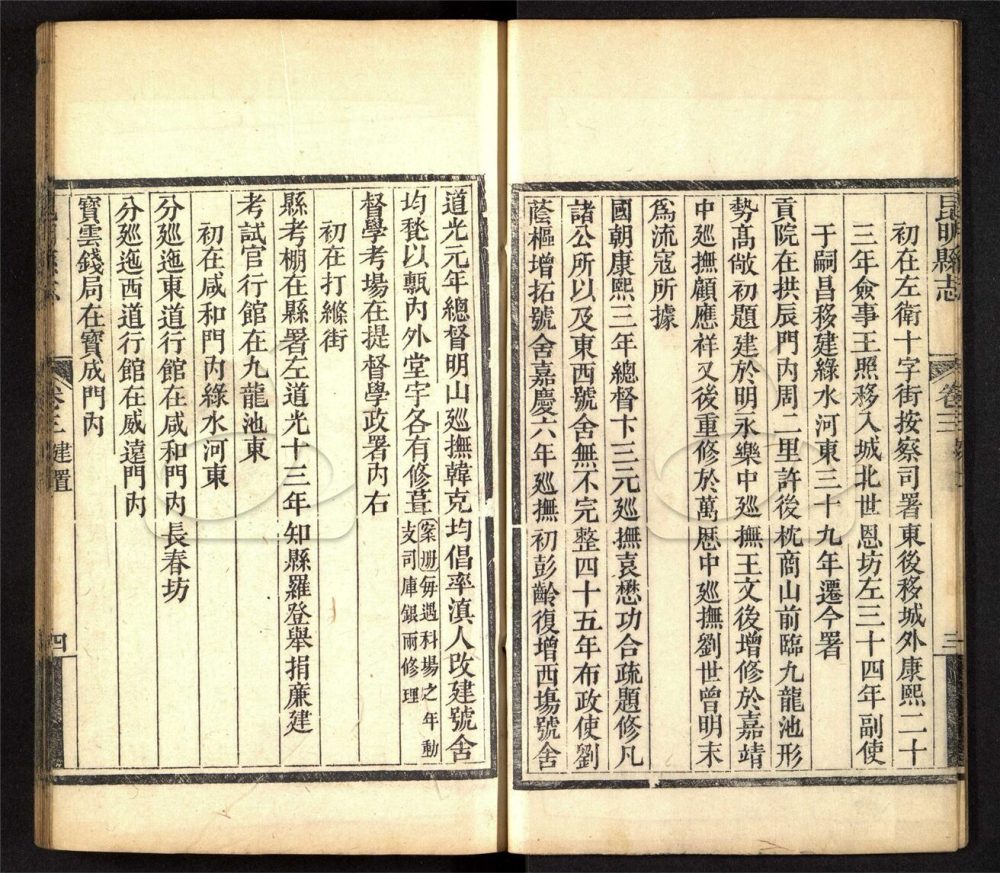 昆明縣志
卷三
三
初在左衛十字街按察司署東後移城外康熙二十
三年僉事王照移入城北世恩坊左三十四年副使
于嗣昌移建綠水河東三十九年遷今署
貢院在拱辰門內周二里許後枕商山前臨九龍池形
勢高敞初題建於明永樂中廵撫王文後增修於嘉靖
中廵撫顧應祥又後重修於萬厯中廵撫劉世曾明末
爲流寇所據
國朝康熙三年總督卞三元廵撫袁懋功合疏題修凡
諸公所以及東西號舍無不完整四十五年布政使劉
蔭樞增拓號舍嘉慶六年廵撫初彭齡復增西塲號舍
道光元年總督明山廵撫韓克均倡率滇人改建號舍
均甃以甎內外堂宇各有修葺案册每遇科場之年動
支司庫銀兩修理
督學考場在提督學政署內右
初在打縧街
縣考棚在縣署左道光十三年知縣羅登舉捐廉建
考試官行館在九龍池東
初在咸和門內綠水河東
分廵迤東道行館在咸和門內長春坊
分廵迤西道行館在威遠門內
寶雲錢局在寶成門內
卷三 建置
四